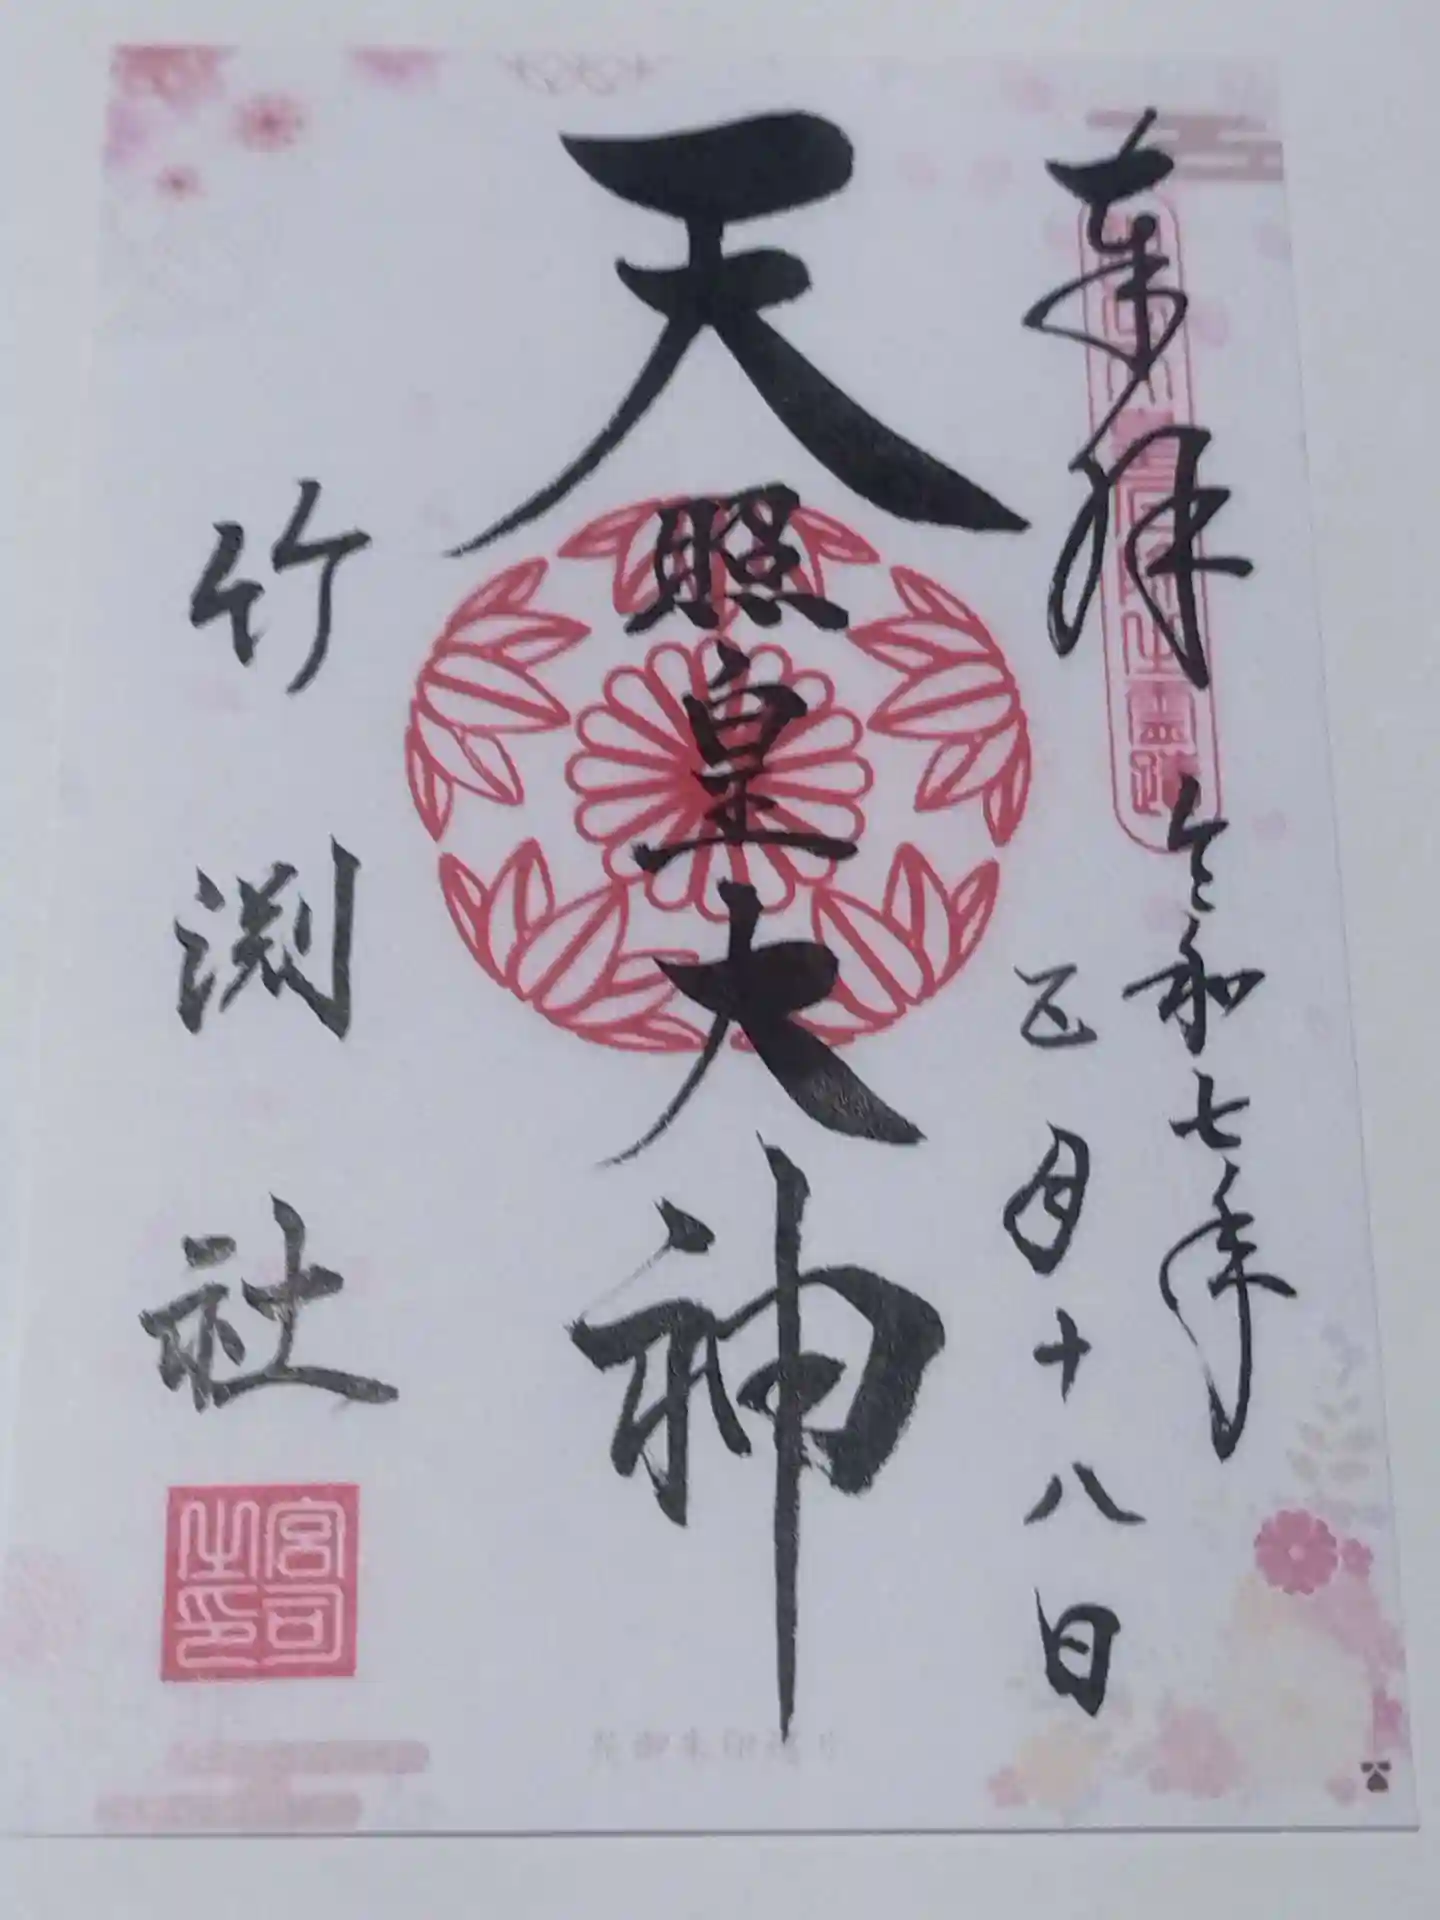 奉拝
令和七年
正月十八日
天照皇大神
竹渕社
宮司之印